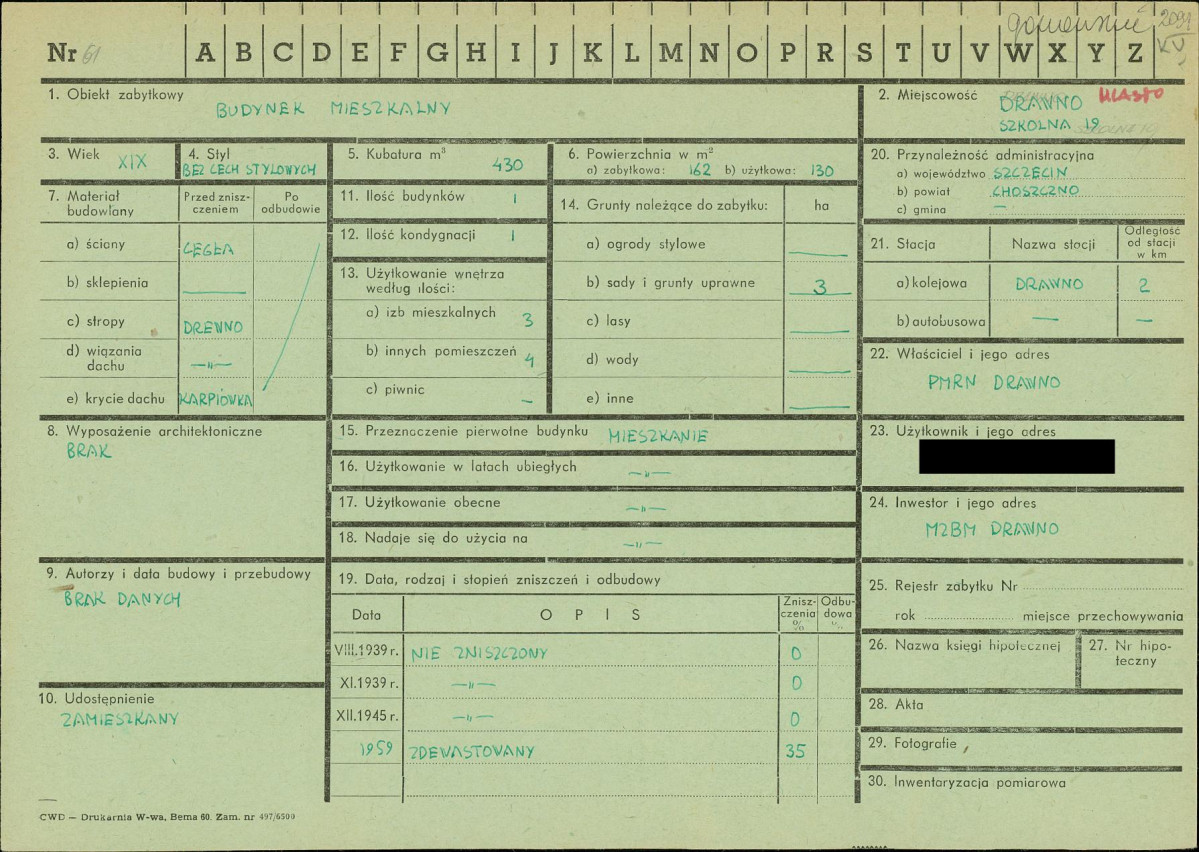 gorzowskie 2091
KV
Nr 61 A B C D E F G H I J K L M N O P R S T U V W X Y Z
1. Obiekt zabytkowy
BUDYNEK MIESZKALNY
2. Miejscowość DRAWNO MIASTO
SZKOLNA 19
3. Wiek XIX
4. Styl
BEZ CECH STYLOWYCH
5. Kubatura m³ 430
6. Powierzchnia w m²
a) zabytkowa: 162 b) użytkowa: 130
20. Przynależność administracyjna
a) województwo SZCZECIN
b) powiat CHOSZCZNO
c) gmina —
7. Materiał budowlany
Przed zniszczeniem
Po odbudowie
a) ściany CEGŁA
b) sklepienia —
c) stropy DREWNO
d) wiązania dachu —„—
e) krycie dachu KARPIÓWKA
11. Ilość budynków 1
12. Ilość kondygnacji 1
13. Użytkowanie wnętrza
według ilości:
a) izb mieszkalnych 3
b) innych pomieszczeń 4
c) piwnic –
14. Grunty należące do zabytku: ha
a) ogrody stylowe —
b) sady i grunty uprawne 3
c) lasy —
d) wody —
e) inne —
21. Stacja Nazwa stacji Odległość od stacji w km
a) kolejowa DRAWNO 2
b) autobusowa — —
22. Właściciel i jego adres
PMRN DRAWNO
8. Wyposażenie architektoniczne
BRAK
15. Przeznaczenie pierwotne budynku MIESZKANIE
16. Użytkowanie w latach ubiegłych —„—
17. Użytkowanie obecne —„—
18. Nadaje się do użycia na —„—
23. Użytkownik i jego adres
24. Inwestor i jego adres
MZBM DRAWNO
9. Autorzy i data budowy i przebudowy
BRAK DANYCH
10. Udostępnienie
ZAMIESZKANY
19. Data, rodzaj i stopień zniszczeń i odbudowy
Data OPIS Zniszczenia % Odbudowa %
VIII.1939 r. NIE ZNISZCZONY 0
XI.1939 r. —„— 0
XII.1945 r. —„— 0
1959 ZDEWASTOWANY 35
25. Rejestr zabytku Nr
rok miejsce przechowywania
26. Nazwa księgi hipotecznej
27. Nr hipoteczny
28. Akta
29. Fotografie
30. Inwentaryzacja pomiarowa
CWD — Drukarnia W-wa, Bema 60. Zam. nr 497/6500